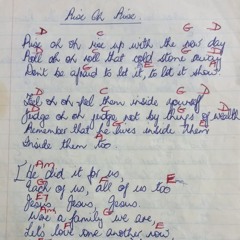 Rise Oh Rise
D C G D
Rise oh oh rise up with the new day
Roll oh oh roll that cold stone away
E A
Dont be afraid to let it, to let it show
D C G D
Feel oh oh feel them inside yourself
Judge oh oh judge, not by things of wealth
G E A
Remember that he lives inside them
A
Inside them too
Am
He did it for us,
G E
Each of us, all of us too
E7
Jesus, Jesus, Jesus
Am
Were a family we are,
G E
Let's love one another now.